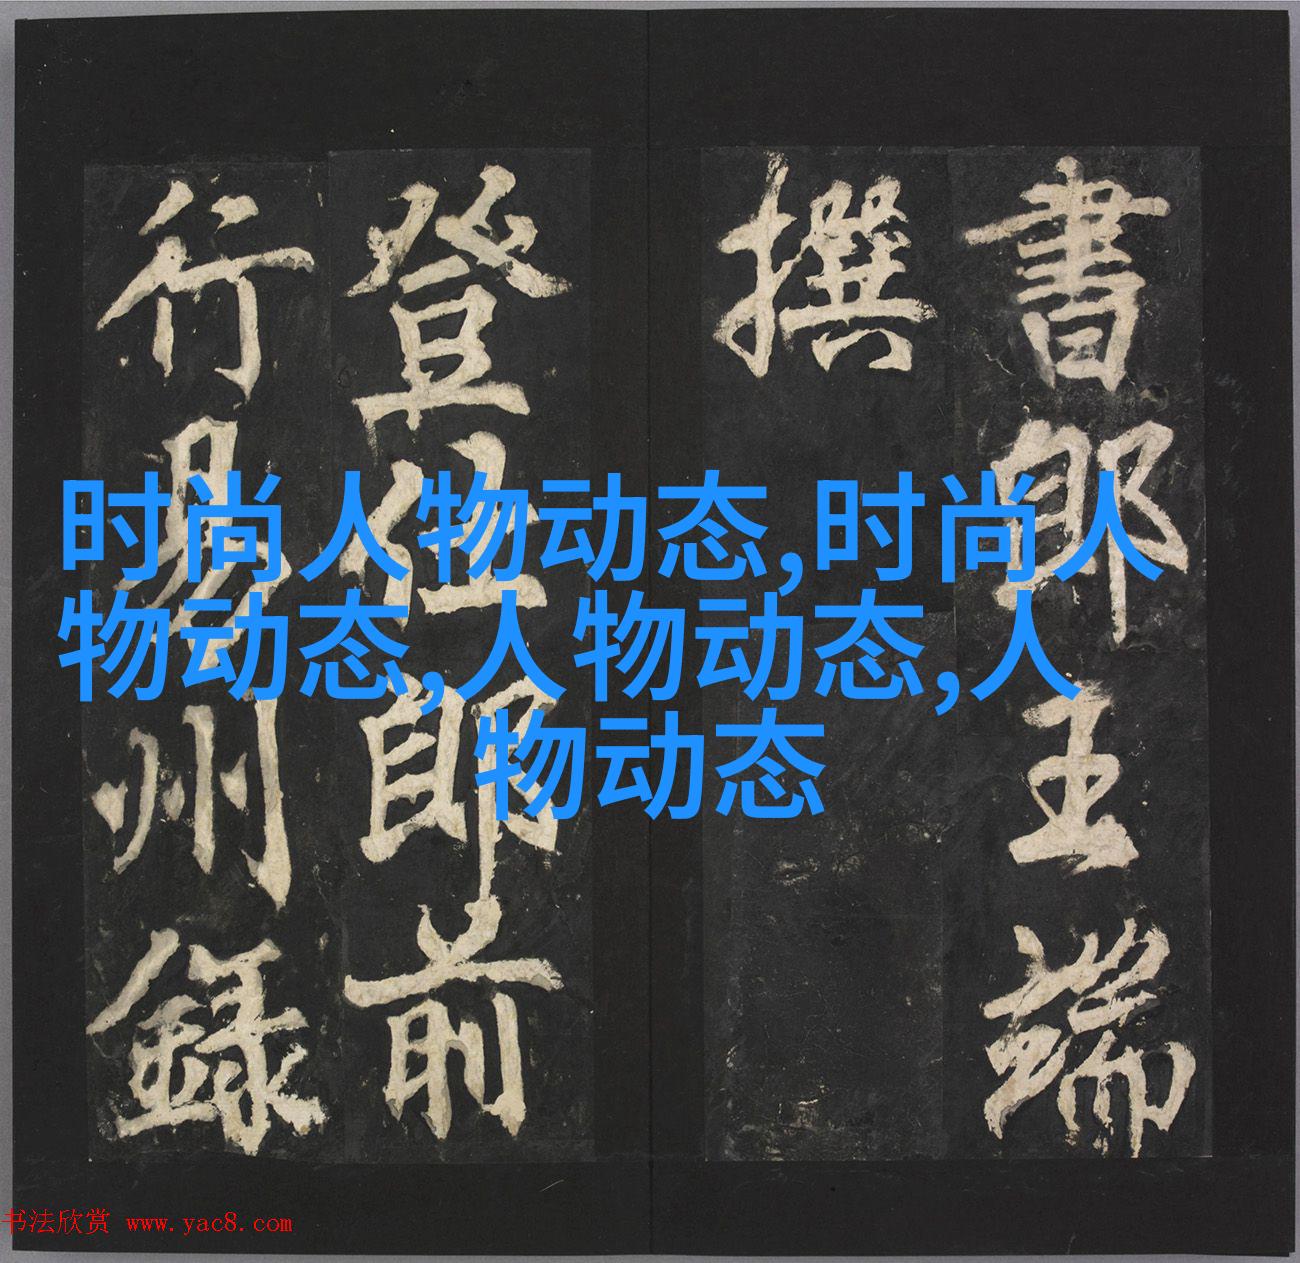 書郎王端
撰
登仕郎前
行易州録
时尚人物动态,时尚人
物动态,人物动态,人
物动态
书法欣赏 www.yac8.com